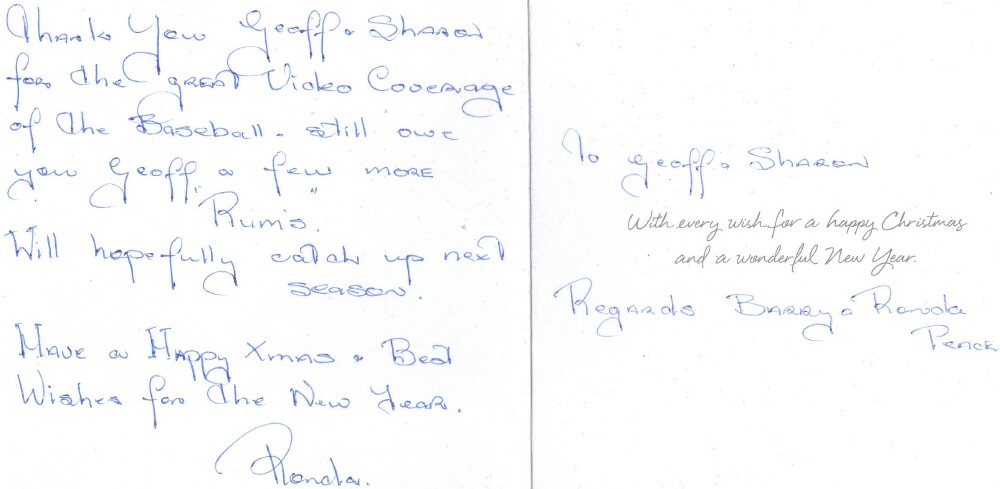 Thank You Geoff & Sharon
for the GREAT Video Coverage
of the Baseball - still owe
you Geoff, a few more
"Rums".
Will hopefully catch up next
season.
Have a Happy Xmas & Best
Wishes for the New Year.
Ronda.
To Geoff & Sharon
With every wish for a happy Christmas
and a wonderful New Year.
Regards Barry & Ronda